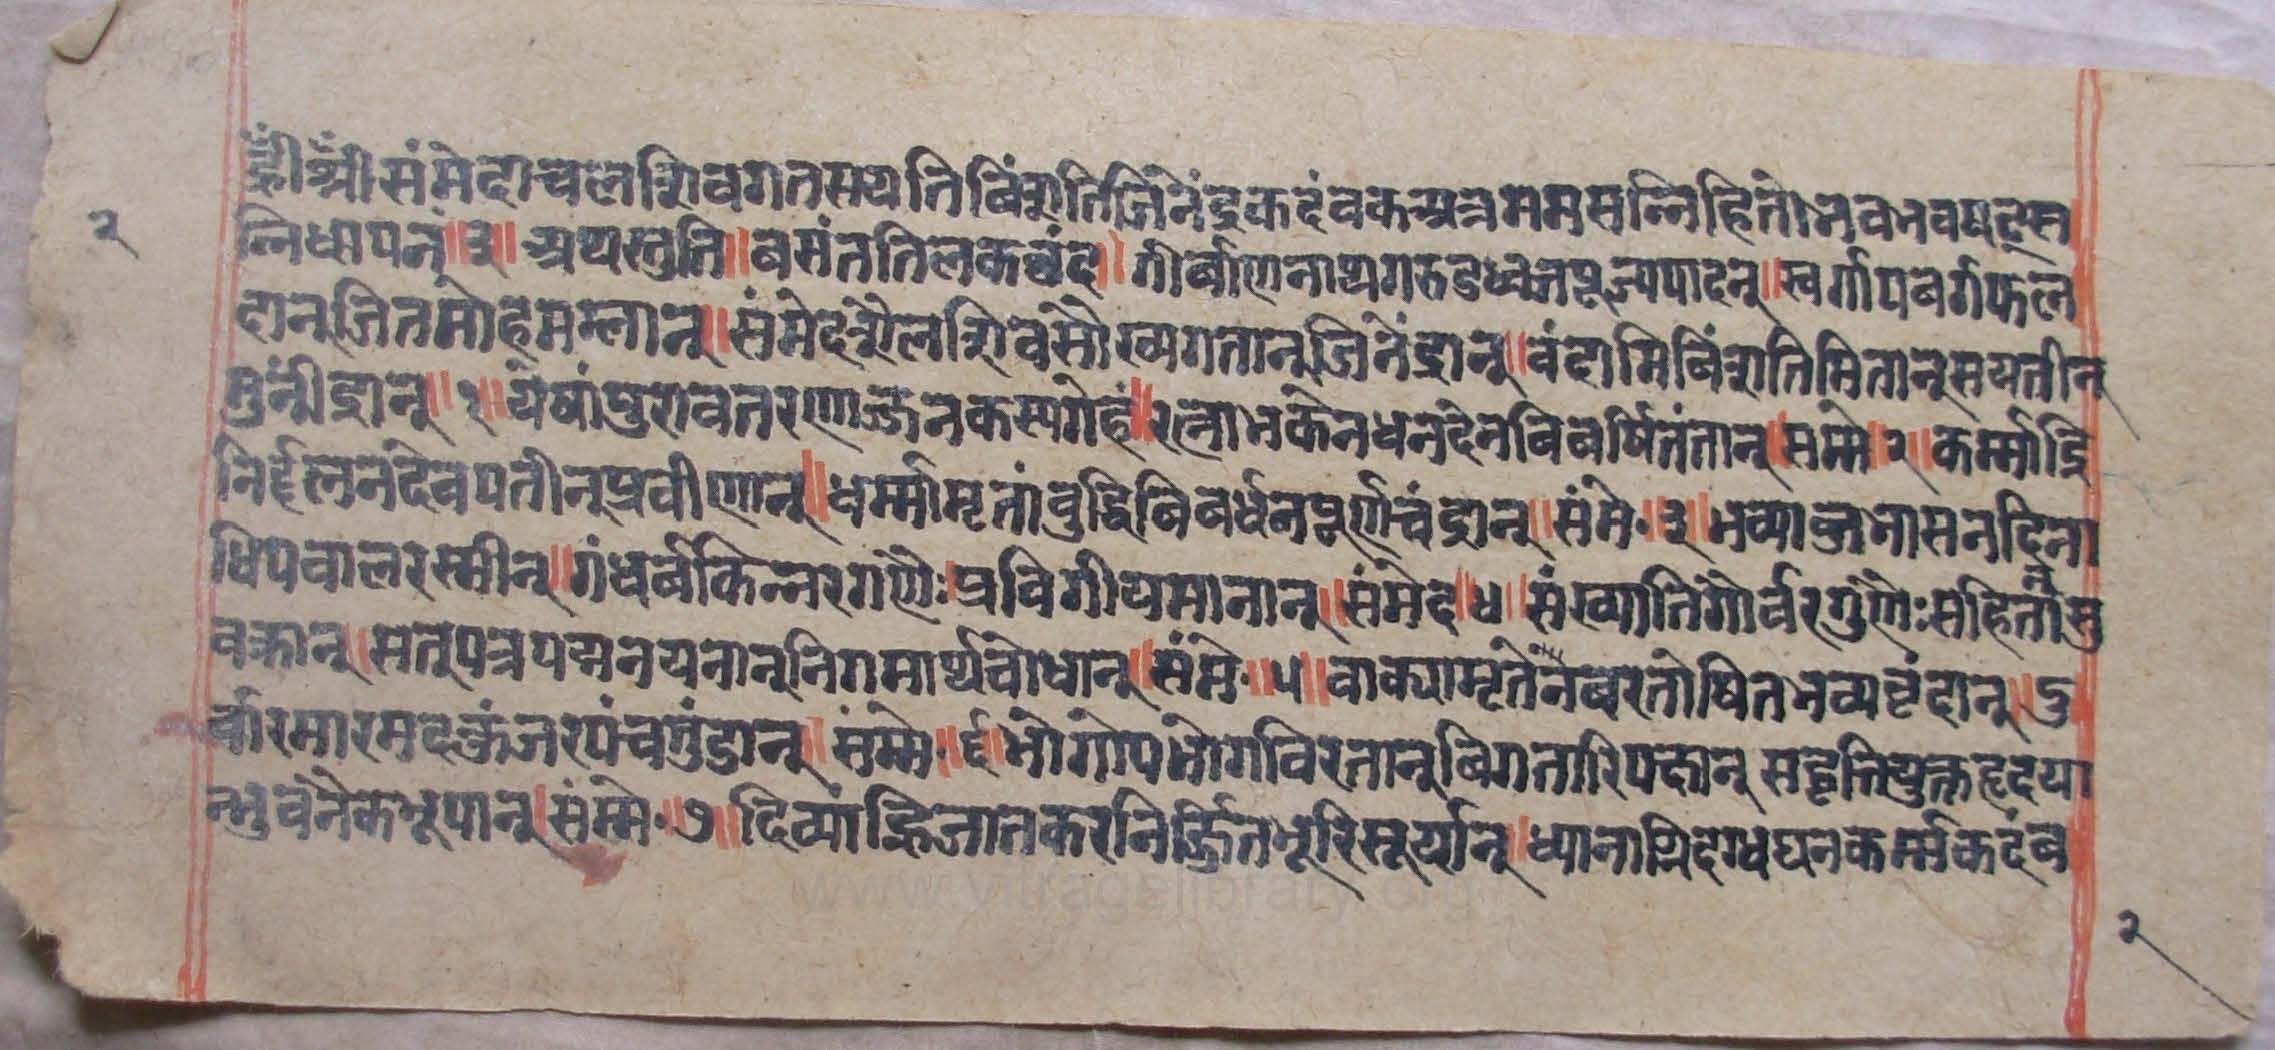 ह्रीँ श्रीँ संमेदाचलशिवगतसयतिबिंशतिजिनेंद्रकदंवकअत्रममसन्निहितोभवभववषट्स
२
न्निधापनं॥३॥अथस्तुति॥बसंततिलकछंद॥गीर्बाणनाथगरुडध्वजपूज्यपादन्॥स्वर्गापबर्गफल
दान्जितमोहमम्लान्॥संमेदशैलशिवसौख्यगतान्जिनेंद्रान्॥वंदामिबिंशतिमितान्सयतीन्
मुंनीद्रान्॥१॥येषांपुरावतरणाज्जनकस्यगेहं॥रत्नाभकेनधनदेनबिबर्षितंतान्॥सम्मे॥२॥कर्म्माद्रि
निर्द्दलनदेवपतीन्प्रवीणान्॥धर्म्मामृतांवुद्धिबिबर्धनपूर्णचंद्रान्॥संमे॰॥३॥भव्याब्जभासनदिना
धिपवालरस्मीन्॥गंधर्बकिन्नरगणैःप्रविगीयमानान्॥संमेद॥४॥संख्यातिगोर्वरगुणैःसहितान्सु
वक्रान्॥सत्पत्रपद्मनयनान्निगमार्थवोधान्॥संमे॰॥५॥वाक्यामृतेनबरतोषितभव्यवृंदान्॥दु
र्वारमारमदकुंजरपंचतुंडान्॥संम्मे॰॥६॥भोगोपभोगविरतान्बिगतारिपक्षान्सद्वृत्तियुक्तहृदया
न्भुवनैकभूपान्॥संम्मे॰॥७॥दिव्यांह्रिजातकरनिर्ज्जितभूरिसूर्यान्॥ध्यानाग्निदग्धघनकर्म्मकदंब
२
www.vitragelibrary.org